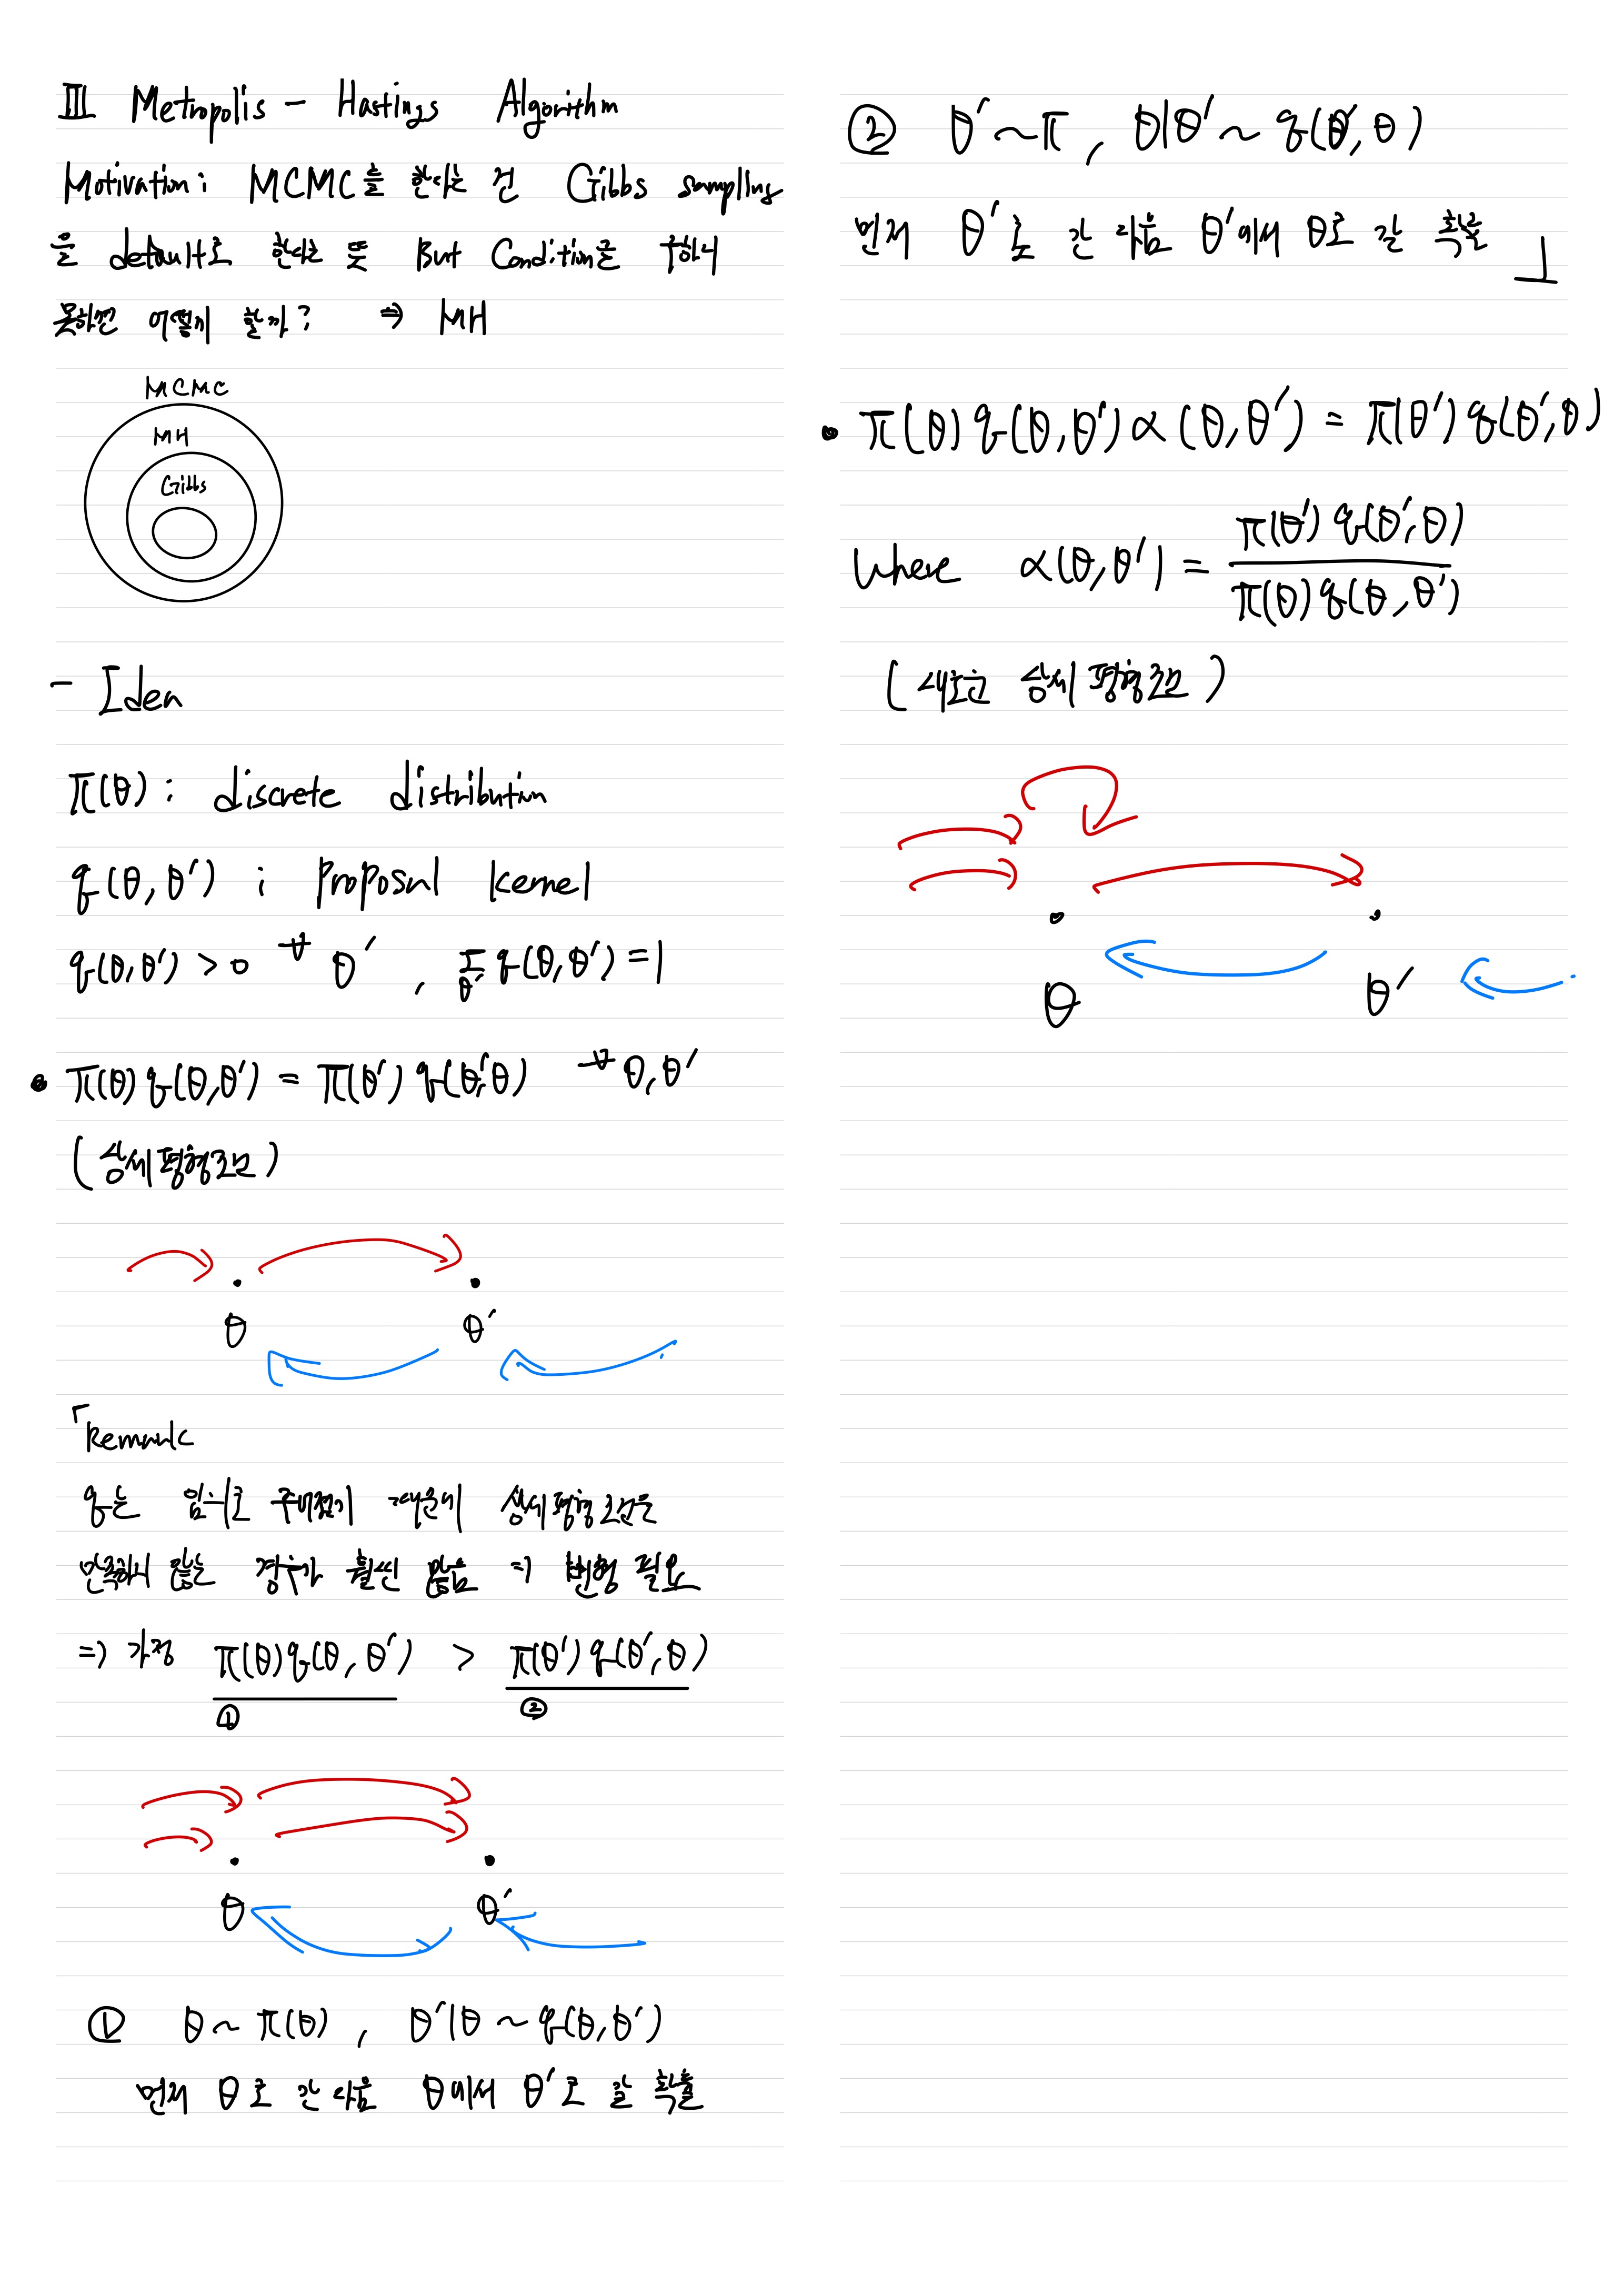 III Metropolis - Hastings Algorithm
Motivation: MCMC를 한다는 건 Gibbs sampling
을 default로 한다는 뜻 But Condition을 구하지
못하면 어떻게 할까? ⇒ MH
MCMC
MH
Gibbs
- Idea
π(θ) : discrete distribution
q(θ, θ′) ; Proposal Kernel
q(θ, θ′) > 0 ∀ θ′ , Σ_θ′ q(θ, θ′) = 1
• π(θ) q(θ, θ′) = π(θ′) q(θ′, θ) ∀ θ, θ′
(상세평형조건)
θ θ′
「Remark
q는 임의로 주어졌기 때문에 상세평형조건을
만족하지 않는 경우가 훨씬 많음 ⇒ 변형 필요
⇒ 가정 π(θ) q(θ, θ′) > π(θ′) q(θ′, θ)
① ②
θ θ′
① θ ~ π(θ) , θ′|θ ~ q(θ, θ′)
먼저 θ로 간 다음 θ에서 θ′로 갈 확률
② θ′ ~ π , θ|θ′ ~ q(θ′, θ)
먼저 θ′로 간 다음 θ′에서 θ로 갈 확률 」
• π(θ) q(θ, θ′) α(θ, θ′) = π(θ′) q(θ′, θ)
where α(θ, θ′) = π(θ′) q(θ′, θ) / π(θ) q(θ, θ′)
(새로운 상세평형조건)
θ θ′